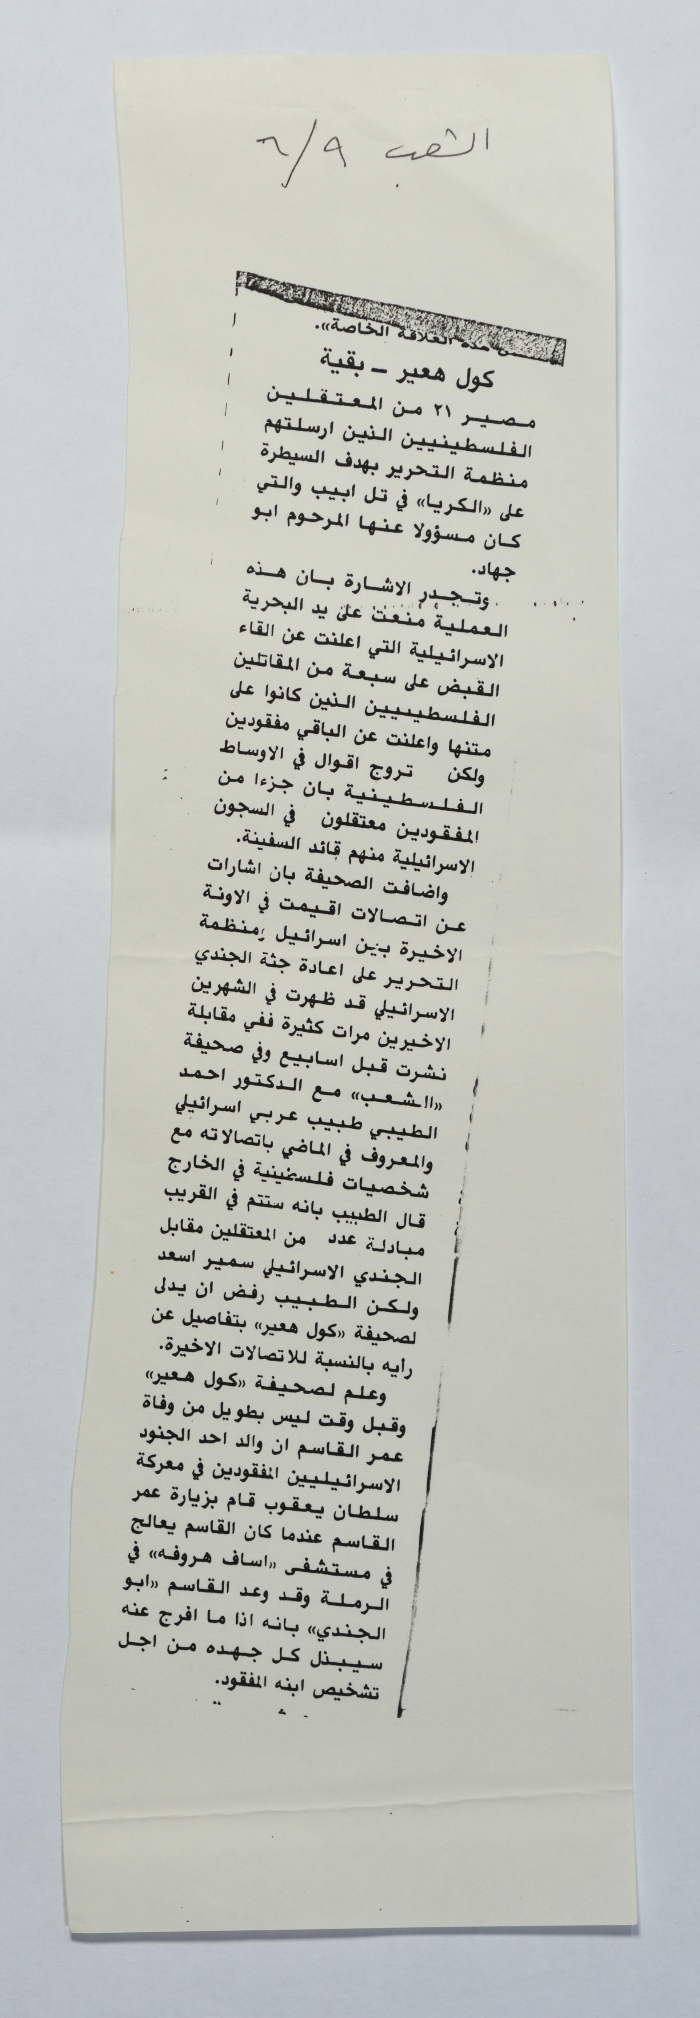 الشعب ٦/٩
من هذه العلاقة الخاصة».
كول هعير ــ بقية
مصير ٢١ من المعتقلين
الفلسطينيين الذين ارسلتهم
منظمة التحرير بهدف السيطرة
على «الكريا» في تل ابيب والتي
كان مسؤولا عنها المرحوم ابو
جهاد.
وتجدر الاشارة بان هذه
العملية منعت على يد البحرية
الاسرائيلية التي اعلنت عن القاء
القبض على سبعة من المقاتلين
الفلسطينيين الذين كانوا على
متنها واعلنت عن الباقي مفقودين
ولكن تروج اقوال في الاوساط
الفلسطينية بان جزءا من
المفقودين معتقلون في السجون
الاسرائيلية منهم قائد السفينة.
واضافت الصحيفة بان اشارات
عن اتصالات اقيمت في الاونة
الاخيرة بين اسرائيل ومنظمة
التحرير على اعادة جثة الجندي
الاسرائيلي قد ظهرت في الشهرين
الاخيرين مرات كثيرة ففي مقابلة
نشرت قبل اسابيع وفي صحيفة
«الشعب» مع الدكتور احمد
الطيبي طبيب عربي اسرائيلي
والمعروف في الماضي باتصالاته مع
شخصيات فلسطينية في الخارج
قال الطبيب بانه ستتم في القريب
مبادلة عدد من المعتقلين مقابل
الجندي الاسرائيلي سمير اسعد
ولكن الطبيب رفض ان يدلى
لصحيفة «كول هعير» بتفاصيل عن
رأيه بالنسبة للاتصالات الاخيرة.
وعلم لصحيفة «كول هعير»
وقبل وقت ليس بطويل من وفاة
عمر القاسم ان والد احد الجنود
الاسرائيليين المفقودين في معركة
سلطان يعقوب قام بزيارة عمر
القاسم عندما كان القاسم يعالج
في مستشفى «اساف هروفه» في
الرملة وقد وعد القاسم «ابو
الجندي» بانه اذا ما افرج عنه
سيبذل كل جهده من اجل
تشخيص ابنه المفقود.